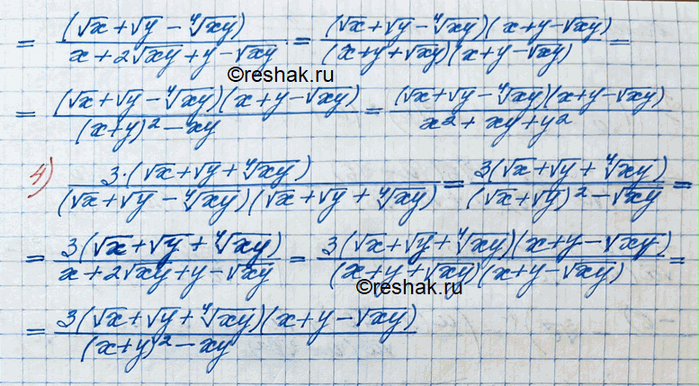 = (√x+√y-⁴√xy) / (x+2√xy+y-√xy) = (√x+√y-⁴√xy)(x+y-√xy) / (x+y+√xy)(x+y-√xy) =
©reshak.ru
= (√x+√y-⁴√xy)(x+y-√xy) / ((x+y)²-xy) = (√x+√y-⁴√xy)(x+y-√xy) / (x²+xy+y²)
4) 3·(√x+√y+⁴√xy) / (√x+√y-⁴√xy)(√x+√y+⁴√xy) = 3(√x+√y+⁴√xy) / ((√x+√y)²-√xy) =
= 3(√x+√y+⁴√xy) / (x+2√xy+y-√xy) = 3(√x+√y+⁴√xy)(x+y-√xy) / (x+y+√xy)(x+y-√xy) =
©reshak.ru
= 3(√x+√y+⁴√xy)(x+y-√xy) / ((x+y)²-xy)